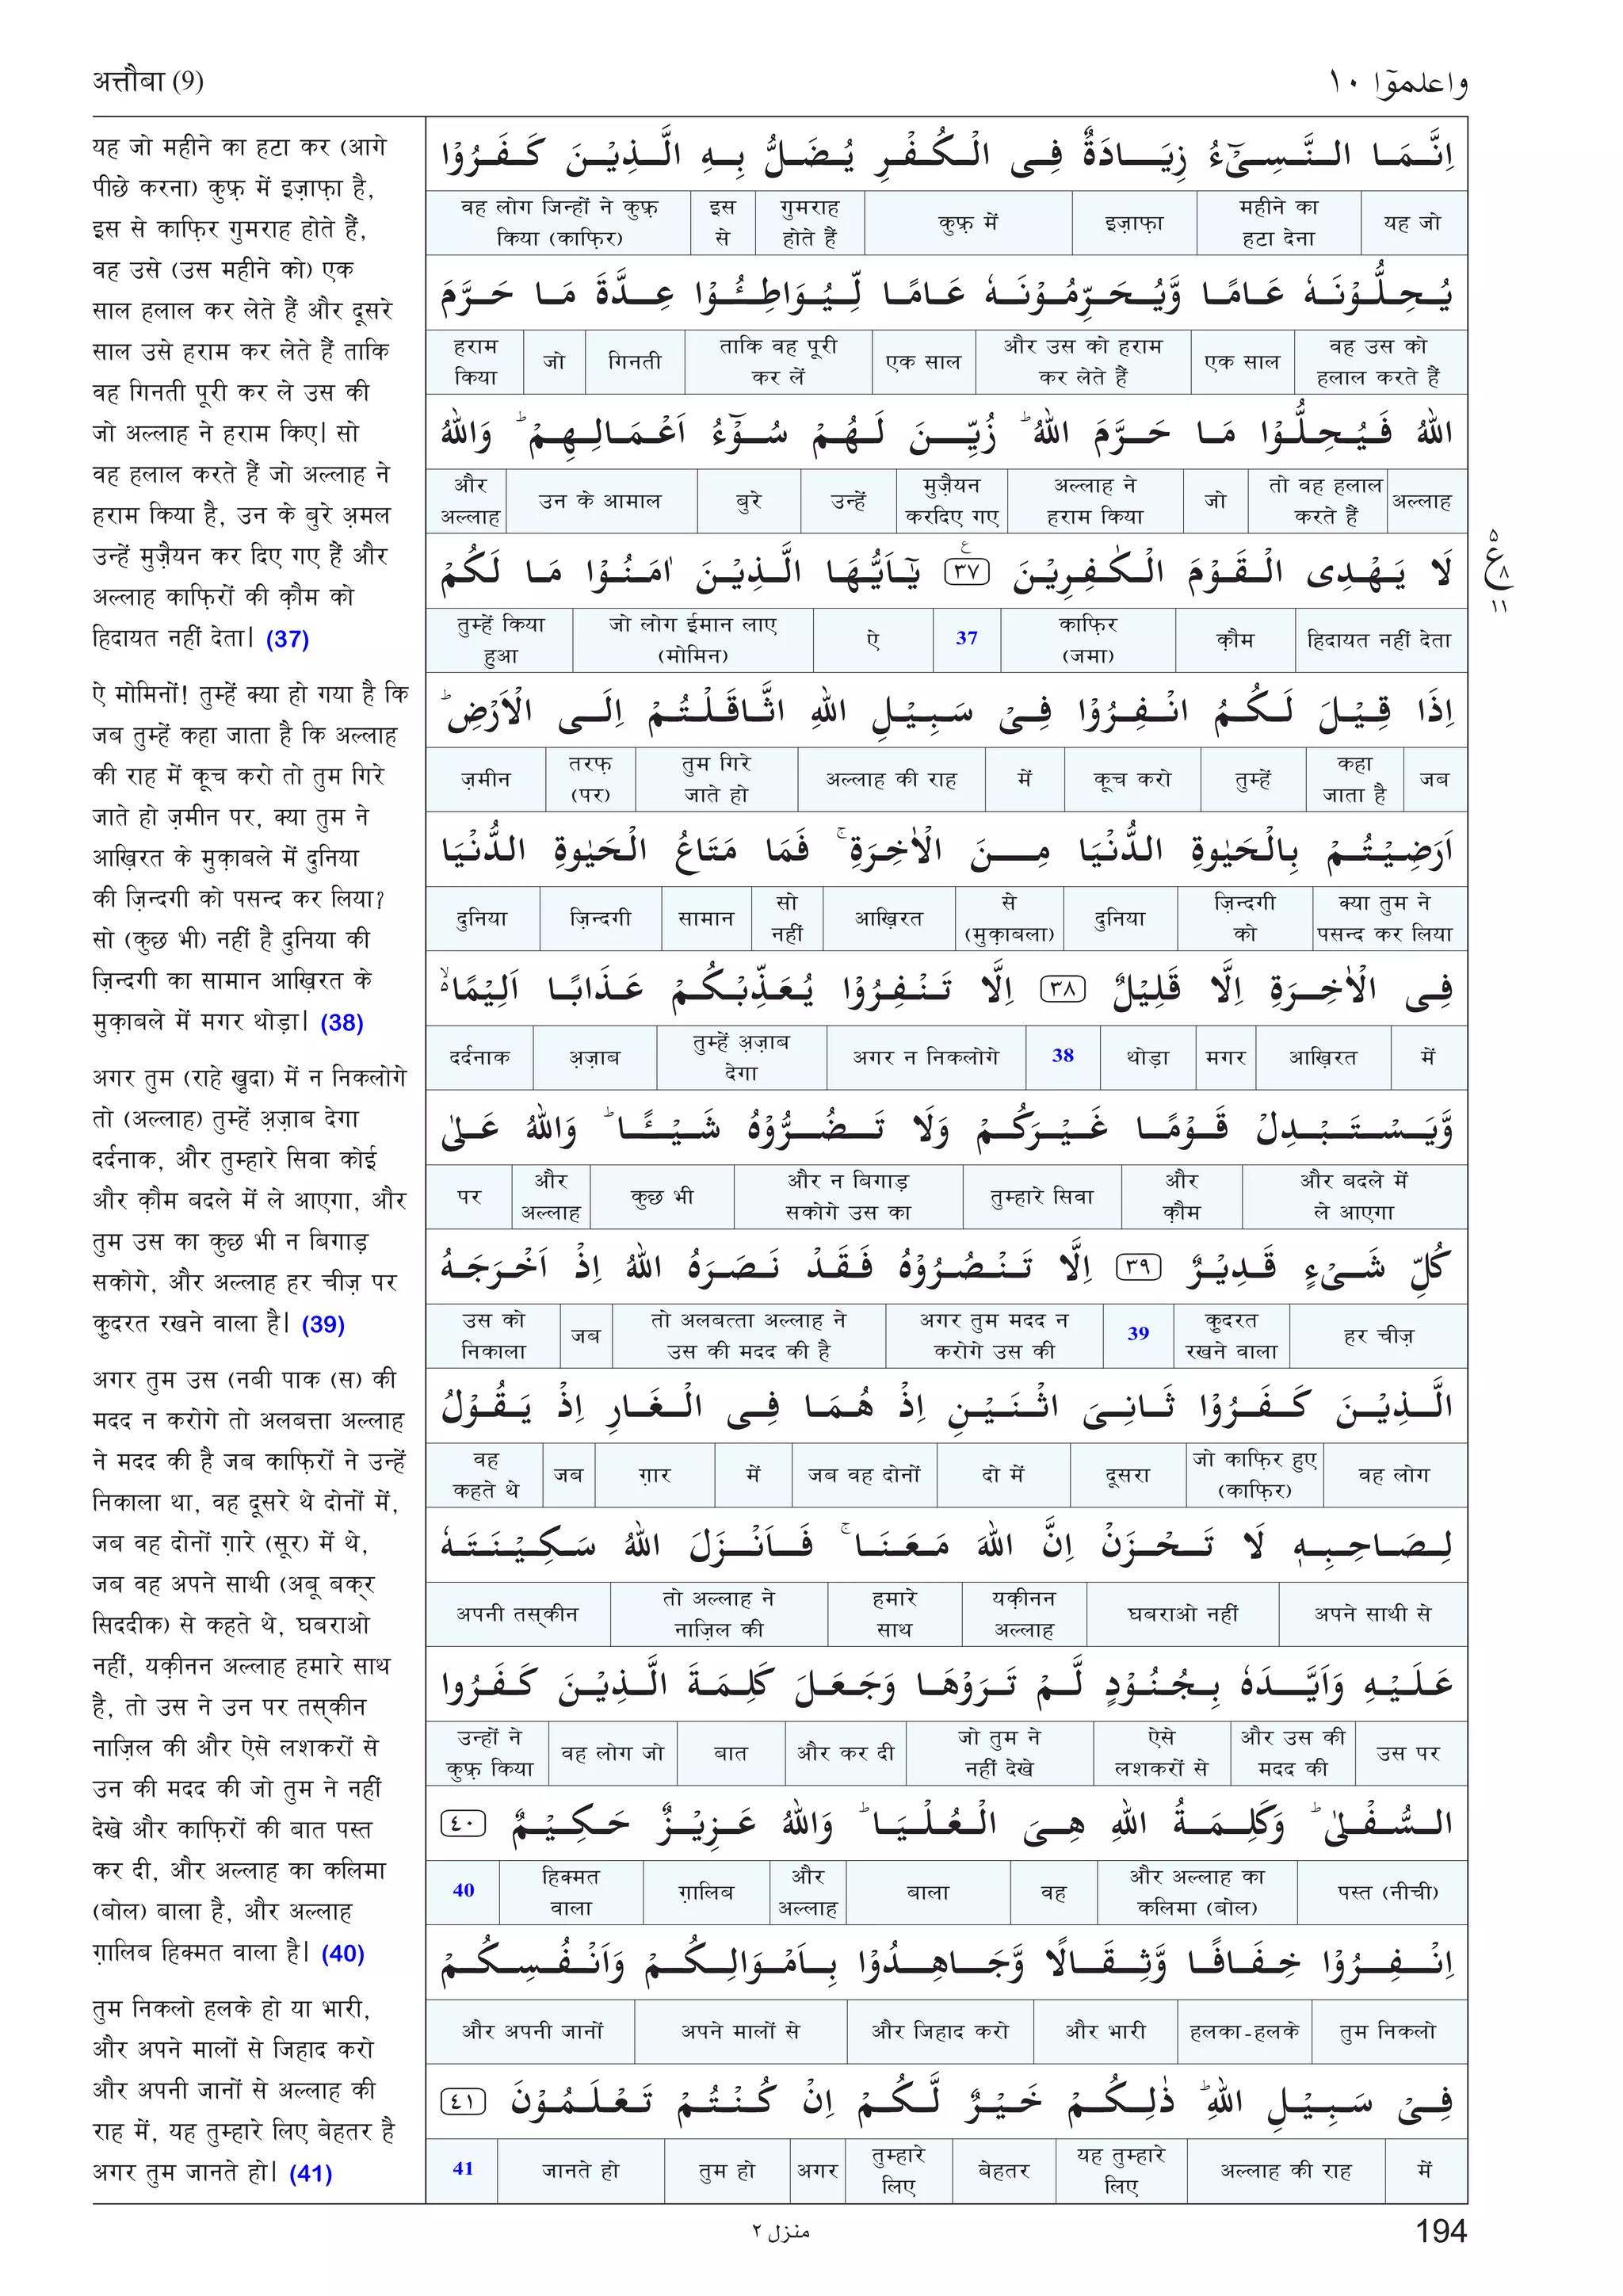 अत्तौबा (9)
واعلموٓا ١٠
यह जो महीने का हटा कर (आगे
पीछे करना) कुफ़्र में इज़ाफ़ा है,
इस से काफ़िर गुमराह होते हैं,
वह उसे (उस महीने को) एक
साल हलाल कर लेते हैं और दूसरे
साल उसे हराम कर लेते हैं ताकि
वह गिनती पूरी कर ले उस की
जो अल्लाह ने हराम किए। सो
वह हलाल करते हैं जो अल्लाह ने
हराम किया है, उन के बुरे अ़मल
उन्हें मुज़ैयन कर दिए गए हैं और
अल्लाह काफ़िरों की क़ौम को
हिदायत नहीं देता। (37)
ऐ मोमिनों! तुम्हें क्या हो गया है कि
जब तुम्हें कहा जाता है कि अल्लाह
की राह में कूच करो तो तुम गिरे
जाते हो ज़मीन पर, क्या तुम ने
आख़िरत के मुक़ाबले में दुनिया
की ज़िन्दगी को पसन्द कर लिया?
सो (कुछ भी) नहीं है दुनिया की
ज़िन्दगी का सामान आख़िरत के
मुक़ाबले में मगर थोड़ा। (38)
अगर तुम (राहे ख़ुदा) में न निकलोगे
तो (अल्लाह) तुम्हें अ़ज़ाब देगा
दर्दनाक, और तुम्हारे सिवा कोई
और क़ौम बदले में ले आएगा, और
तुम उस का कुछ भी न बिगाड़
सकोगे, और अल्लाह हर चीज़ पर
कुदरत रखने वाला है। (39)
अगर तुम उस (नबी पाक (स) की
मदद न करोगे तो अलबत्ता अल्लाह
ने मदद की है जब काफ़िरों ने उन्हें
निकाला था, वह दूसरे थे दोनों में,
जब वह दोनों ग़ारे (सूर) में थे,
जब वह अपने साथी (अबू बक्र्
सिददीक) से कहते थे, घबराओ
नहीं, यक़ीनन अल्लाह हमारे साथ
है, तो उस ने उन पर तस्कीन
नाज़िल की और ऐसे लशकरों से
उन की मदद की जो तुम ने नहीं
देखे और काफ़िरों की बात पस्त
कर दी, और अल्लाह का कलिमा
(बोल) बाला है, और अल्लाह
ग़ालिब हिक्मत वाला है। (40)
तुम निकलो हलके हो या भारी,
और अपने मालों से जिहाद करो
और अपनी जानों से अल्लाह की
राह में, यह तुम्हारे लिए बेहतर है
अगर तुम जानते हो। (41)
اِنَّمَا النَّسِىْٓءُ زِيَادَةٌ فِى الْكُفْرِ يُضَلُّ بِهِ الَّذِيْنَ كَفَرُوْا
यह जो | महीने का हटा देना | इज़ाफ़ा | कुफ़्र में | गुमराह होते हैं | इस से | वह लोग जिन्हों ने कुफ़्र किया (काफ़िर)
يُحِلُّوْنَهٗ عَامًا وَّيُحَرِّمُوْنَهٗ عَامًا لِّيُوَاطِـُٔوْا عِدَّةَ مَا حَرَّمَ
वह उस को हलाल करते हैं | एक साल | और उस को हराम कर लेते हैं | एक साल | ताकि वह पूरी कर लें | गिनती | जो | हराम किया
اللّٰهُ فَيُحِلُّوْا مَا حَرَّمَ اللّٰهُ ؕ زُيِّنَ لَهُمْ سُوْٓءُ اَعْمَالِهِمْ ؕ وَاللّٰهُ
अल्लाह | तो वह हलाल करते हैं | जो | अल्लाह ने हराम किया | मुज़ैयन करदिए गए | उन्हें | बुरे | उन के आमाल | और अल्लाह
لَا يَهْدِى الْقَوْمَ الْكٰفِرِيْنَ ٣٧ يٰٓاَيُّهَا الَّذِيْنَ اٰمَنُوْا مَا لَكُمْ
हिदायत नहीं देता | क़ौम | काफ़िर (जमा) | 37 | ऐ | जो लोग ईमान लाए (मोमिन) | तुम्हें किया हुआ
اِذَا قِيْلَ لَكُمُ انْفِرُوْا فِىْ سَبِيْلِ اللّٰهِ اثَّاقَلْتُمْ اِلَى الْاَرْضِ ؕ
जब | कहा जाता है | तुम्हें | कूच करो | में | अल्लाह की राह | तुम गिरे जाते हो | तरफ़ (पर) | ज़मीन
اَرَضِيْتُمْ بِالْحَيٰوةِ الدُّنْيَا مِنَ الْاٰخِرَةِ ۚ فَمَا مَتَاعُ الْحَيٰوةِ الدُّنْيَا
क्या तुम ने पसन्द कर लिया | ज़िन्दगी को | दुनिया | से (मुक़ाबला) | आख़िरत | सो नहीं | सामान | ज़िन्दगी | दुनिया
فِى الْاٰخِرَةِ اِلَّا قَلِيْلٌ ٣٨ اِلَّا تَنْفِرُوْا يُعَذِّبْكُمْ عَذَابًا اَلِيْمًا ۙ
में | आख़िरत | मगर | थोड़ा | 38 | अगर न निकलोगे | तुम्हें अ़ज़ाब देगा | अ़ज़ाब | दर्दनाक
وَّيَسْتَبْدِلْ قَوْمًا غَيْرَكُمْ وَلَا تَضُرُّوْهُ شَيْـًٔا ؕ وَاللّٰهُ عَلٰى
और बदले में ले आएगा | और क़ौम | तुम्हारे सिवा | और न बिगाड़ सकोगे उस का | कुछ भी | और अल्लाह | पर
كُلِّ شَىْءٍ قَدِيْرٌ ٣٩ اِلَّا تَنْصُرُوْهُ فَقَدْ نَصَرَهُ اللّٰهُ اِذْ اَخْرَجَهُ
हर चीज़ | कुदरत रखने वाला | 39 | अगर तुम मदद न करोगे उस की | तो अलबत्ता अल्लाह ने उस की मदद की है | जब | उस को निकाला
الَّذِيْنَ كَفَرُوْا ثَانِىَ اثْنَيْنِ اِذْ هُمَا فِى الْغَارِ اِذْ يَقُوْلُ
वह लोग | जो काफ़िर हुए (काफ़िर) | दूसरा | दो में | जब वह दोनों | में | ग़ार | जब | वह कहते थे
لِصَاحِبِهٖ لَا تَحْزَنْ اِنَّ اللّٰهَ مَعَنَا ۚ فَاَنْزَلَ اللّٰهُ سَكِيْنَتَهٗ
अपने साथी से | घबराओ नहीं | यक़ीनन अल्लाह | हमारे साथ | तो अल्लाह ने नाज़िल की | अपनी तस्कीन
عَلَيْهِ وَاَيَّدَهٗ بِجُنُوْدٍ لَّمْ تَرَوْهَا وَجَعَلَ كَلِمَةَ الَّذِيْنَ كَفَرُوا
उस पर | और उस की मदद की | ऐसे लशकरों से | जो तुम ने नहीं देखे | और कर दी | बात | वह लोग जो | उन्हों ने कुफ़्र किया
السُّفْلٰى ؕ وَكَلِمَةُ اللّٰهِ هِىَ الْعُلْيَا ؕ وَاللّٰهُ عَزِيْزٌ حَكِيْمٌ ٤٠
पस्त (नीची) | और अल्लाह का कलिमा (बोल) | वह | बाला | और अल्लाह | ग़ालिब | हिक्मत वाला | 40
اِنْفِرُوْا خِفَافًا وَّثِقَالًا وَّجَاهِدُوْا بِاَمْوَالِكُمْ وَاَنْفُسِكُمْ
तुम निकलो | हलका-हलके | और भारी | और जिहाद करो | अपने मालों से | और अपनी जानों
فِىْ سَبِيْلِ اللّٰهِ ؕ ذٰلِكُمْ خَيْرٌ لَّكُمْ اِنْ كُنْتُمْ تَعْلَمُوْنَ ٤١
में | अल्लाह की राह | यह तुम्हारे लिए | बेहतर | तुम्हारे लिए | अगर | तुम हो | जानते हो | 41
٥
ع ٨
١١
منزل ٢
194